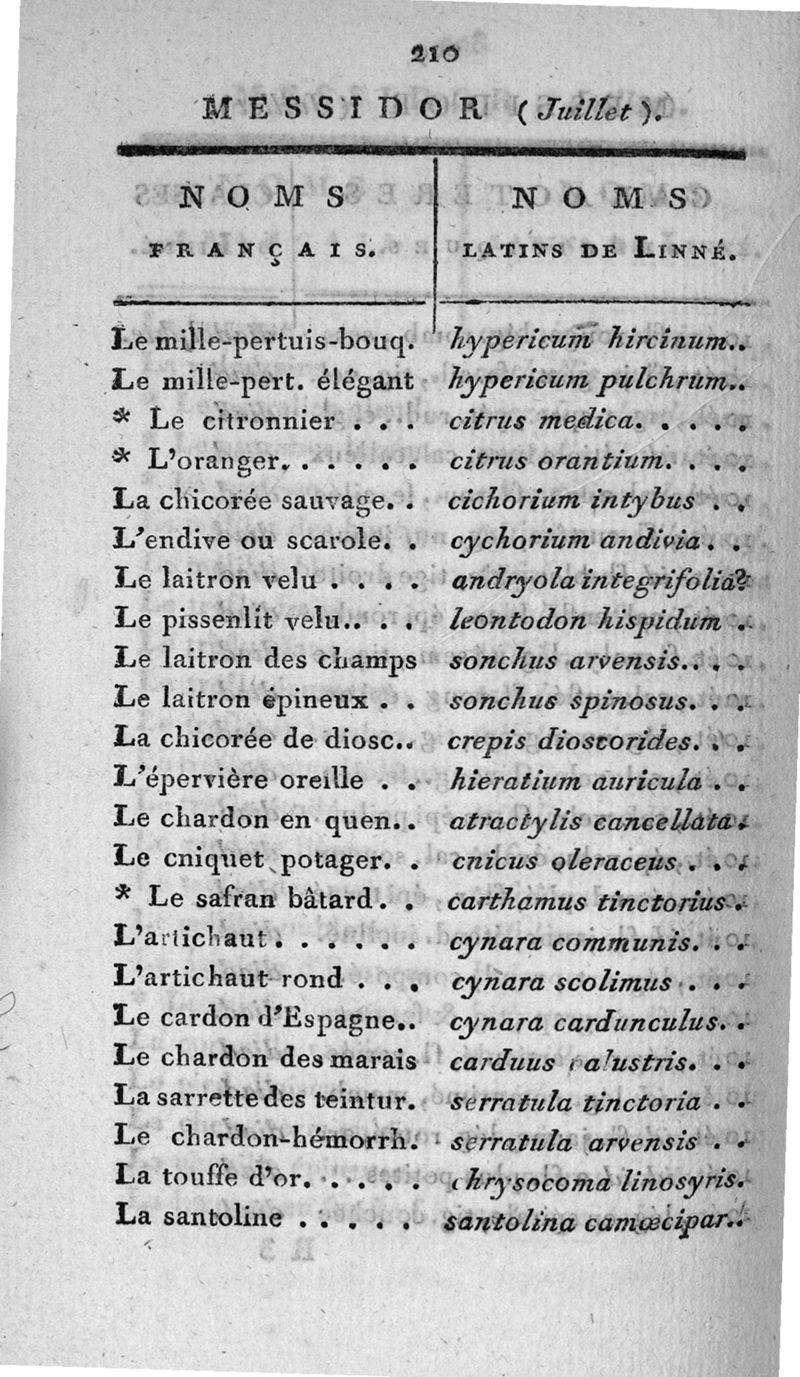 210
MESSIDOR (Juillet).
NOMS FRANÇAIS. NOMS LATINS DE LINNÉ.
Le mille-pertuis-bouq. hypericum hircinum..
Le mille-pert. élégant hypericum pulchrum..
* Le citronnier . . . citrus medica. . . . .
* L'oranger. . . . . . citrus orantium. . . .
La chicorée sauvage. . cichorium intybus . .
L'endive ou scarole. . cychorium andivia . .
Le laitron velu . . . . andryola integrifolia.
Le pissenlit velu.. . . leontodon hispidum . .
Le laitron des champs sonchus arvensis.. . .
Le laitron épineux . . sonchus spinosus. . . .
La chicorée de diosc.. crepis dioscorides. . .
L'épervière oreille . . hieratium auricula . . .
Le chardon en quen.. atractylis cancellata .
Le cniquet potager. . cnicus oleraceus . . .
* Le safran bâtard. . carthamus tinctorius . .
L'artichaut . . . . . . cynara communis. . .
L'artichaut rond . . . cynara scolimus . . .
Le cardon d'Espagne.. cynara cardunculus. .
Le chardon des marais carduus palustris. . .
La sarrette des teintur. serratula tinctoria . .
Le chardon-hémorrh. serratula arvensis . .
La touffe d'or. . . . . chrysocoma linosyris.
La santoline . . . . . santolina camœcipar..